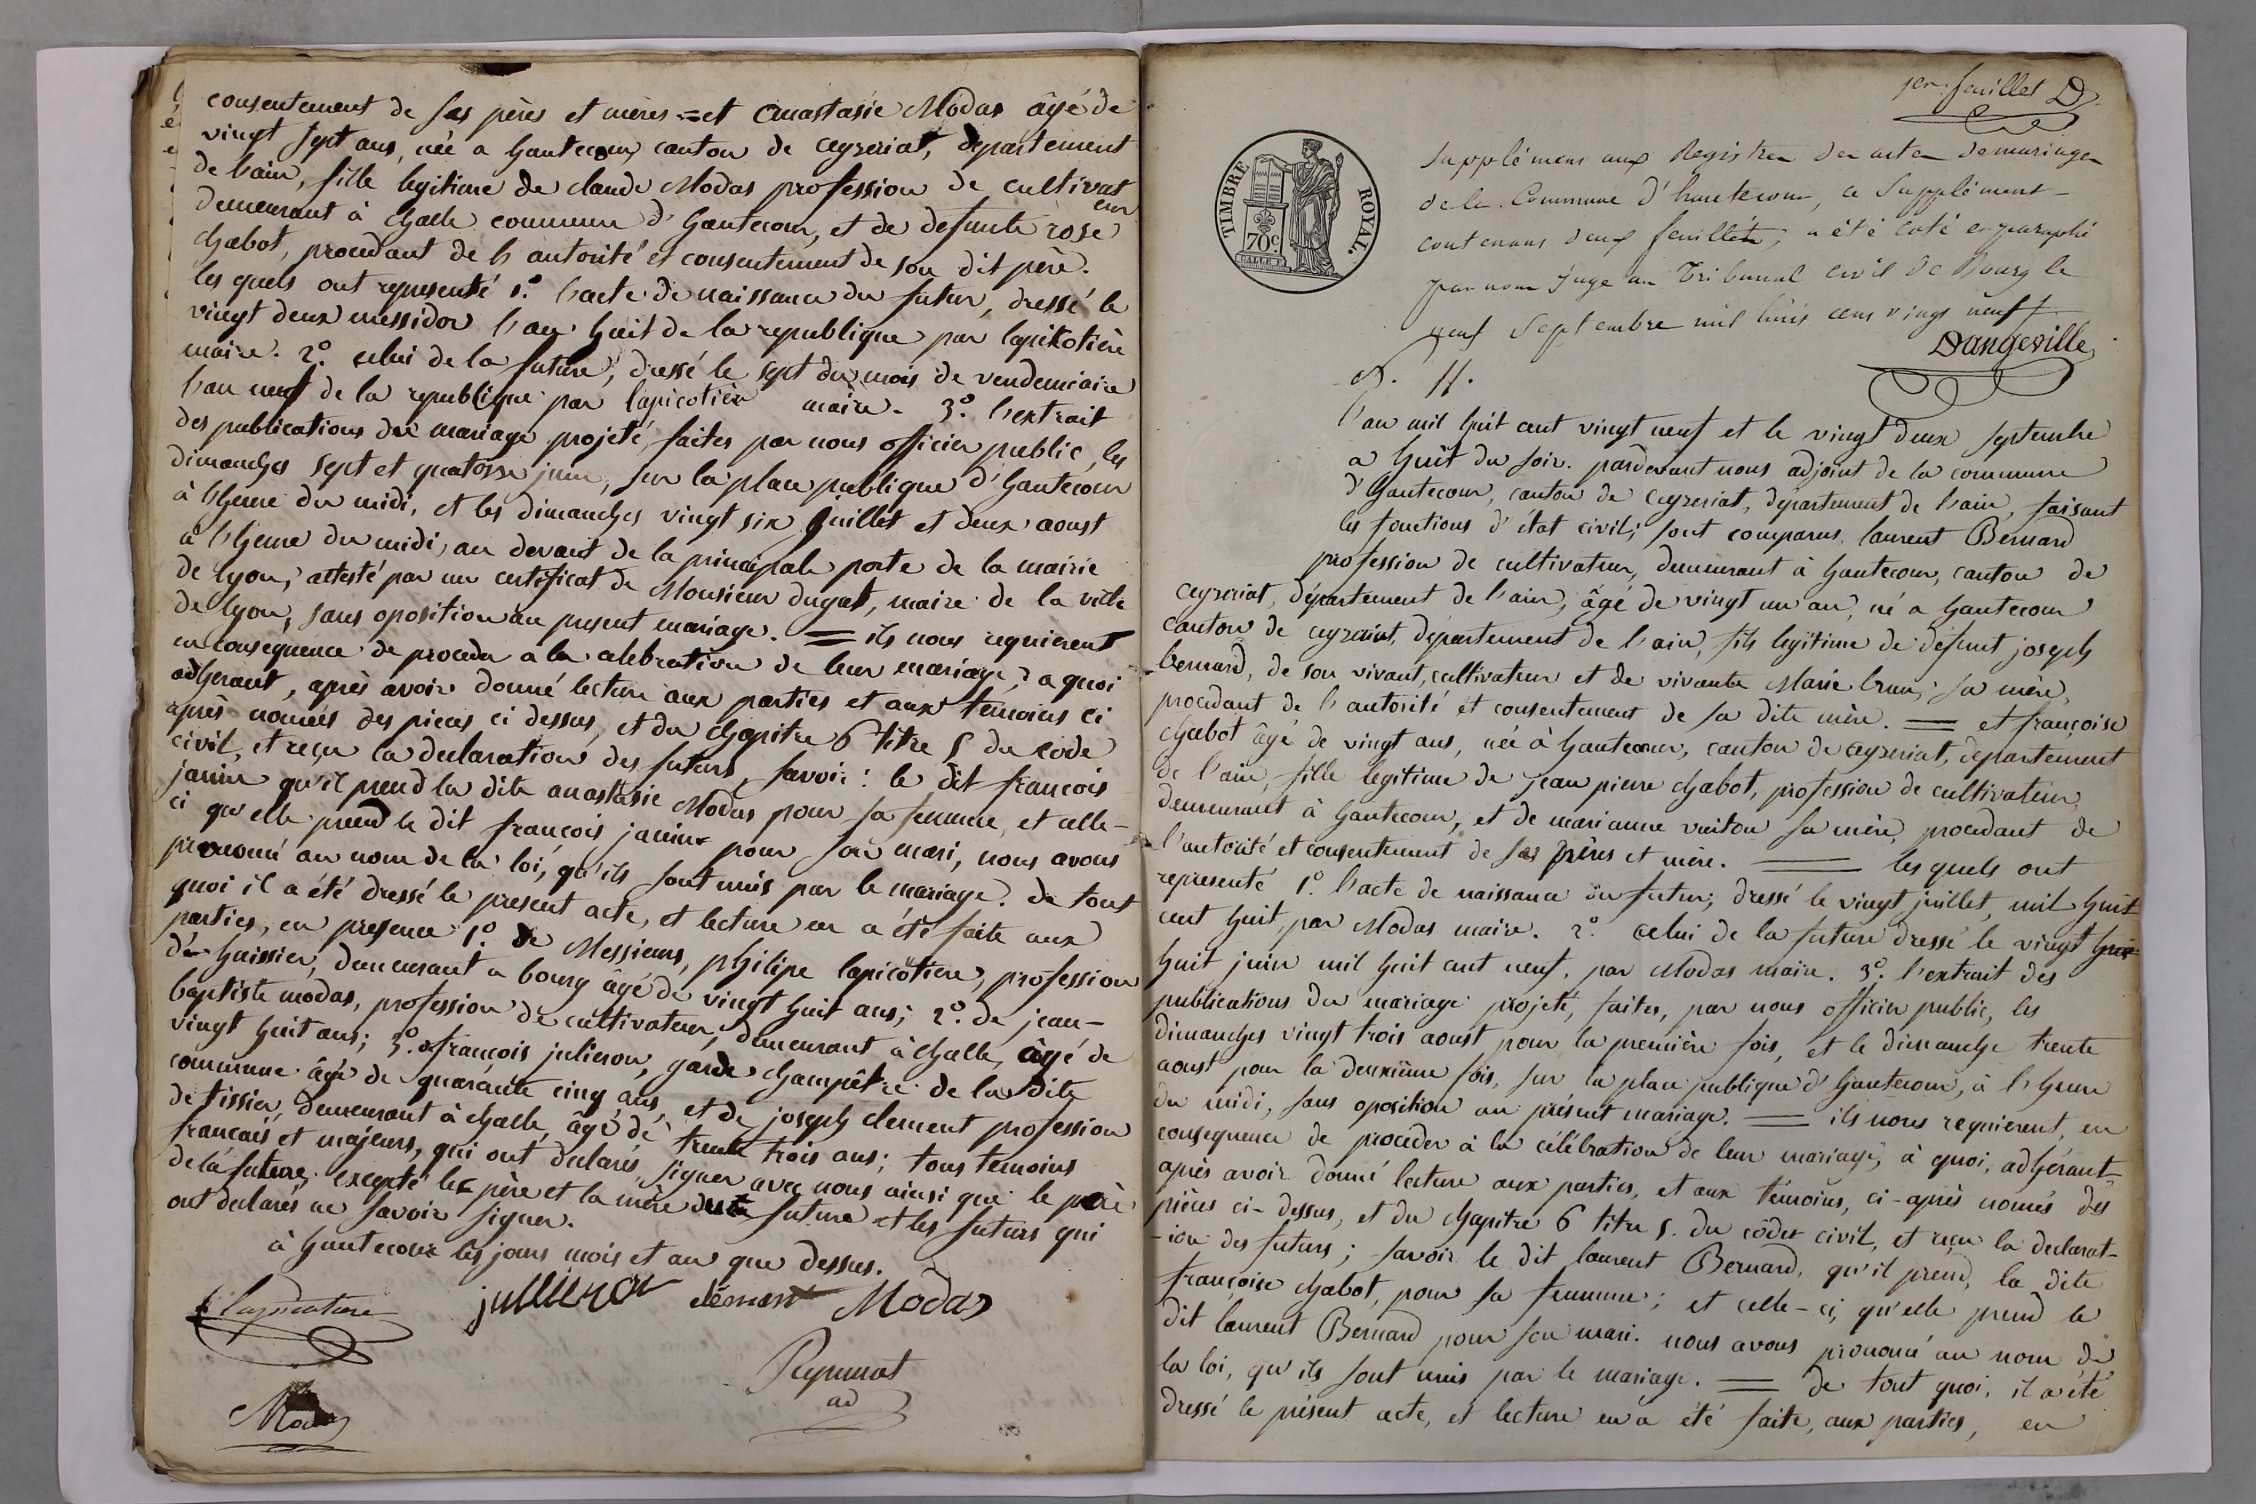 consentement de ses pères et mères = et anastasie Modas âgé de
vingt sept ans, née a hautecour, canton de ceyzeriat, departement
de l'ain, fille legitime de claude Modas profession de cultivat
eur
demeurant à challe commune d'hautecour, et de defunte rose
chabot, procedant de l'autorité et consentement de son dit père.
les quels ont representé 1.º l'acte de naissance du futur, dressé le
vingt deux messidor l'an huit de la republique par lapicotière
maire. 2.º celui de la future, dressé le sept du mois de vendemiaire
l'an neuf de la republique par lapicotièr maire. 3.º l'extrait
des publications du mariage projeté, faites par nous officier public, les
dimanches sept et quatorze juin, sur la place publique d'hautecour
à l'heure du midi, et les dimanches vingt six juillet et deux aoust
à l'heure du midi, au devant de la principale porte de la mairie
de lyon, attesté par un certificat de Monsieur dugat, maire de la ville
de lyon, sans oposition au present mariage. = ils nous requierent
en consequence de proceder a la celebration de leur mariage, a quoi
adherant, après avoir donné lecture aux parties et aux temoins ci
après només des pieces ci dessus, et du chapitre 6 titre 5 du code
civil, et reçu la declaration des futurs, savoir : le dit françois
janin qu'il prend la dite anastasie Modas pour sa femme, et celle-
ci qu'elle prend le dit françois janin pour son mari, nous avons
prononcé au nom de la loi, qu'ils sont unis par le mariage. de tout
quoi il a été dressé le present acte, et lecture en a été faite aux
parties, en presence 1.º de Messieurs, philipe lapicotiere, profession
d'huissier, demeurant a bourg âgé de vingt huit ans; 2.º de jean-
baptiste modas, profession de cultivateur, demeurant à challe, âgé de
vingt huit ans; 3.º françois julieron, garde champêtre de la dite
commune âgé de quarante cinq ans, et de joseph clement profession
de tissier, demeurant à challe, âgé de trente trois ans; tous temoins
francais et majeurs, qui ont declarés signer avec nous ainsi que le père
de la future; excepté le père et la mère future et les futurs qui
ont declarés ne savoir signer.
à hautecour les jours mois et an que dessus.
jullieron clément Modas
Reymmat
ad
Modas
1er feuillet D
Supplémens aux Registres des actes de mariages
de la Commune d'hautecour, ce Supplément
contenans deux feuillets, a été coté et paraphé
par nous Juge au Tribunal civil de Bourg le
neuf Septembre mil huit cens vingt neuf
Dangeville
TIMBRE ROYAL.
70c.
l'an mil huit cent vingt neuf et le vingt deux septembre
a huit du soir. pardevant nous adjoint de la commune
d'hautecour, canton de ceyzeriat, département de l'ain, faisant
les fonctions d'état civil; sont comparus, laurent Bernard
profession de cultivateur, demeurant à hautecour, canton de
ceyzeriat, département de l'ain, âgé de vingt un an, né a hautecour
canton de ceyzeriat, département de l'ain, fils legitime de défunt joseph
bernard, de son vivant, cultivateur et de vivante Marie brun, sa mère,
procedant de l'autorité et consentement de sa dite mère. = et françoise
chabot âgé de vingt ans, née à hautecour, canton de ceyzeriat, département
de l'ain, fille legitime de jean pierre chabot, profession de cultivateur,
demeurant à hautecour, et de marianne sa mère, procedant de
l'autorité et consentement de ses pères et mère. = les quels ont
representé 1.º l'acte de naissance du futur; dressé le vingt juillet, mil huit
cent huit, par Modas maire. 2.º celui de la future dressé le vingt
huit juin mil huit cent neuf, par Modas maire. 3.º l'extrait des
publications du mariage projeté, faites, par nous officier public, les
dimanches vingt trois aoust pour la première fois, et le dimanche trente
aoust pour la deuxième fois, sur la place publique d'hautecour, à l'heure
du midi, sans oposition au présent mariage. = ils nous requierent, en
consequence de procéder à la célébration de leur mariage, à quoi, adhérant,
après avoir donné lecture aux parties, et aux témoins, ci-après només des
pièces ci-dessus, et du chapitre 6 titre 5. du codes civil, et reçu la declarat-
-ion des futurs; savoir le dit laurent Bernard, qu'il prend, la dite
françoise chabot, pour sa femme; et celle-ci, qu'elle prend le
dit laurent Bernard pour son mari. nous avons prononcé au nom de
la loi, qu'ils sont unis par le mariage. = de tout quoi, il a été
dressé le présent acte, et lecture en a été faite, aux parties, en